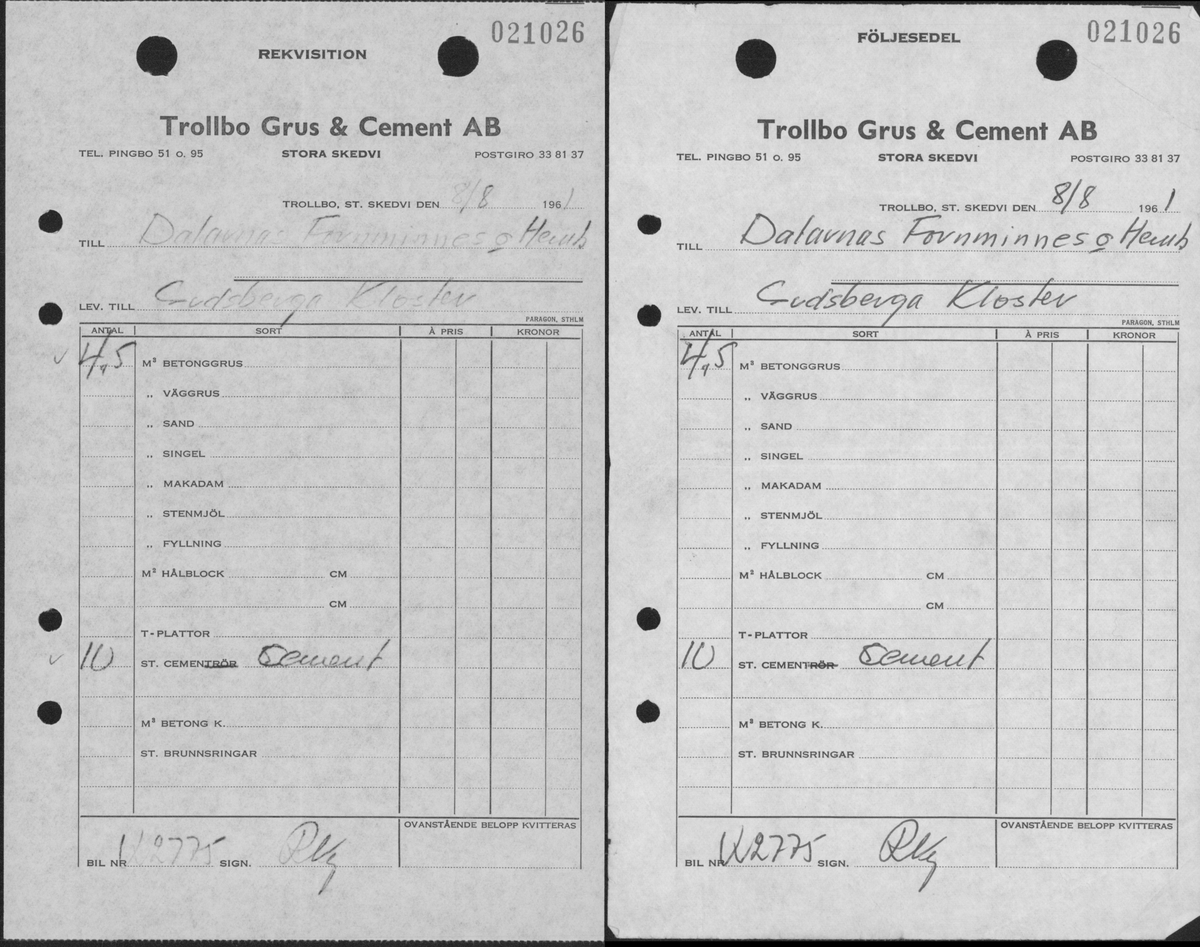 021026
REKVISITION
Trollbo Grus & Cement AB
TEL. PINGBO 51 o. 95 STORA SKEDVI POSTGIRO 33 81 37
TROLLBO, ST. SKEDVI DEN 8/8 1961
TILL Dalarnas Fornminnes o Hemb
LEV. TILL Gudsberga Kloster
PARAGON, STHLM
ANTAL SORT À PRIS KRONOR
4,5 M³ BETONGGRUS
„ VÄGGRUS
„ SAND
„ SINGEL
„ MAKADAM
„ STENMJÖL
„ FYLLNING
M² HÅLBLOCK CM
CM
T-PLATTOR
10 ST. CEMENTRÖR Cement
M³ BETONG K.
ST. BRUNNSRINGAR
OVANSTÅENDE BELOPP KVITTERAS
BIL NR W2775 SIGN.
021026
FÖLJESEDEL
Trollbo Grus & Cement AB
TEL. PINGBO 51 o. 95 STORA SKEDVI POSTGIRO 33 81 37
TROLLBO, ST. SKEDVI DEN 8/8 1961
TILL Dalarnas Fornminnes o Hemb
LEV. TILL Gudsberga Kloster
PARAGON, STHLM
ANTAL SORT À PRIS KRONOR
4,5 M³ BETONGGRUS
„ VÄGGRUS
„ SAND
„ SINGEL
„ MAKADAM
„ STENMJÖL
„ FYLLNING
M² HÅLBLOCK CM
CM
T-PLATTOR
10 ST. CEMENTRÖR Cement
M³ BETONG K.
ST. BRUNNSRINGAR
OVANSTÅENDE BELOPP KVITTERAS
BIL NR W2775 SIGN.